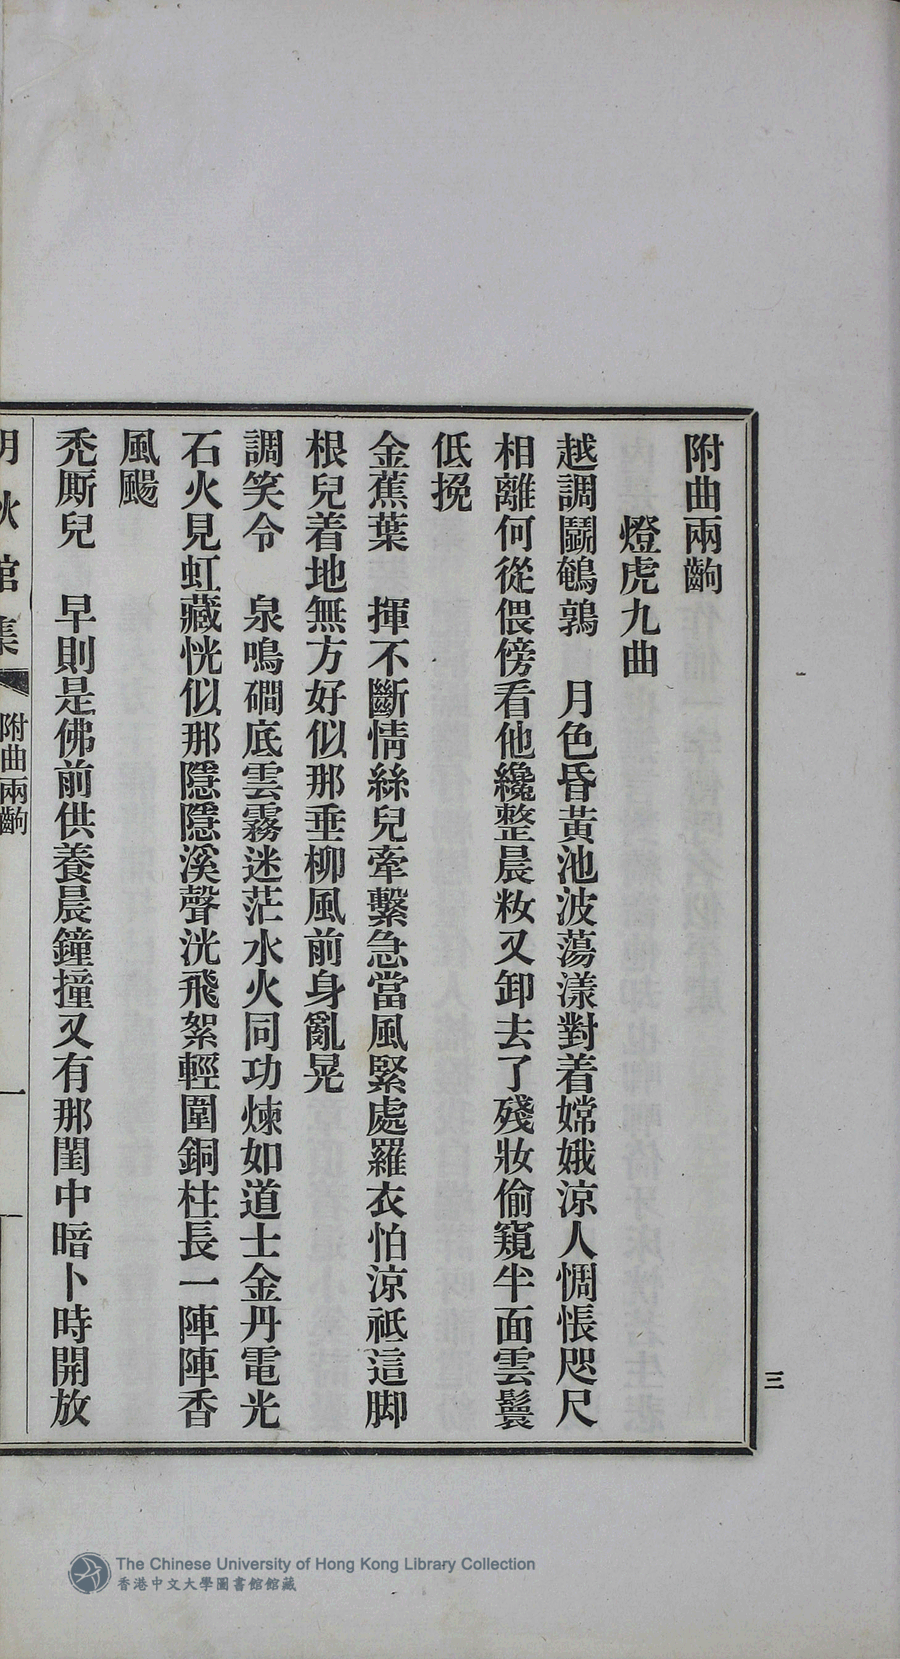 附曲兩齣
燈虎九曲
越調鬬鵪鶉　月色昏黃池波蕩漾對着嫦娥涼人惆悵咫尺
相離何從偎傍看他纔整晨妝又卸去了殘妝偷窺半面雲鬟
低挽
金蕉葉　揮不斷情絲兒牽繫急當風緊處羅衣怕涼祗這脚
根兒着地無方好似那垂柳風前身亂晃
調笑令　泉鳴磵底雲霧迷茫水火同功煉如道士金丹電光
石火見虹藏恍似那隱隱溪聲洸飛絮輕圍銅柱長一陣陣香
風颺
禿厮兒　早則是佛前供養晨鐘撞又有那閨中暗卜時開放
館集
附曲兩齣
一
三
The Chinese University of Hong Kong Library Collection
香港中文大學圖書館館藏